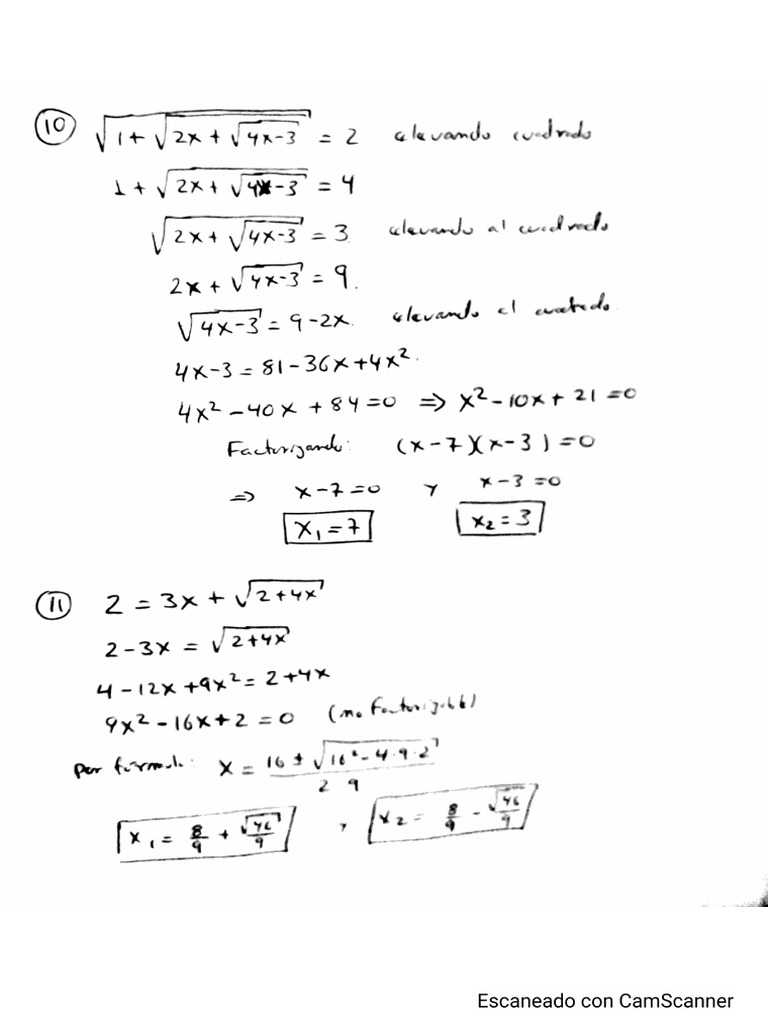 10 √(1+√(2x+√(4x-3))) = 2 elevando cuadrado
1+√(2x+√(4x-3)) = 4
√(2x+√(4x-3)) = 3 elevando al cuadrado
2x+√(4x-3) = 9.
√(4x-3) = 9-2x. elevando al cuadrado.
4x-3 = 81-36x+4x².
4x²-40x+84=0 ⇒ x²-10x+21=0
Factorizando: (x-7)(x-3)=0
⇒ x-7=0 y x-3=0
x₁=7 x₂=3
11 2 = 3x+√(2+4x)
2-3x = √(2+4x)
4-12x+9x² = 2+4x
9x²-16x+2=0 (no factorizable)
por formula: x = (16 ± √(16²-4·9·2))/(2·9)
x₁ = 8/9 + √46/9 , x₂ = 8/9 - √46/9
Escaneado con CamScanner